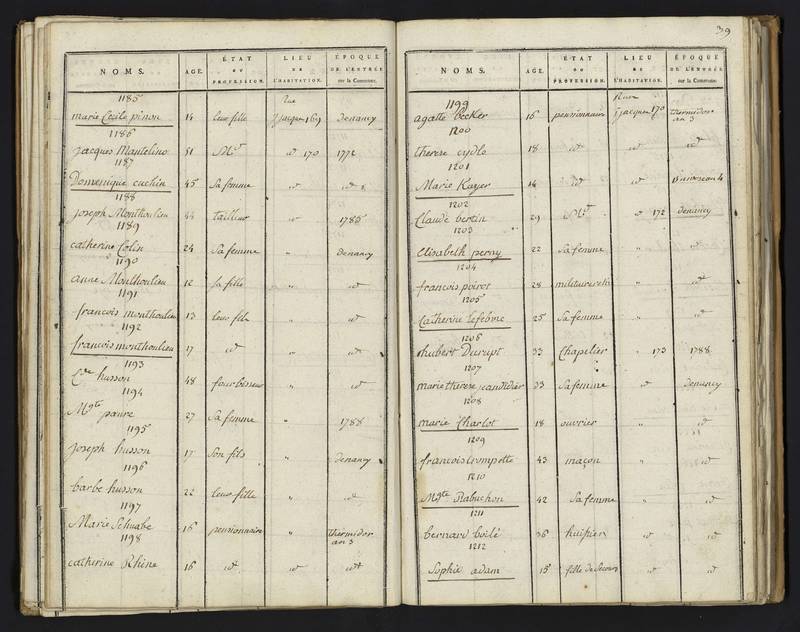 NOMS. AGE. ÉTAT OU PROFESSION. LIEU DE L'HABITATION. ÉPOQUE DE L'ENTRÉE sur la Commune.
1185 Rue
marie Cecile pinon 14 leur fille J jacque 169 denancy
1186
jacques Mantelino 51 Md id 170 1772
1187
Domenique cuchin 45 Sa femme id id
1188
joseph Monthoulieu 44 tailleur id 1785
1189
catherine Colin 24 Sa femme " denancy
1190
anne Monthoulieu 12 la fille " id
1191
francois monthoulieu 13 leur fils " id
1192
francois monthoulieu 17 id " id
1193
Cde husson 48 fourbisseur " id
1194
Mgte paure 27 Sa femme " 1788
1195
joseph husson 17 Son fils " denancy
1196
barbe husson 22 leur fille " id
1197
Marie Schuabe 16 pensionnaire " thermidor an 3
1198
catherine Rhine 16 id id id
39
NOMS. AGE. ÉTAT OU PROFESSION. LIEU DE L'HABITATION. ÉPOQUE DE L'ENTRÉE sur la Commune.
1199 Rue
agatte becker 16 pensionnaire J jacque 170 thermidor an 3
1200
therese cydlo 18 id id id
1201
Marie Kayer 14 id id
1202
Claude bertin 29 Md id 172 denancy
1203
Elisabeth perny 22 Sa femme " id
1204
francois poirot 28 militaire " id
1205
Catherine Lefebvre 25 Sa femme " id
1206
hubert Ducrupt 33 Chapelier " 173 1788
1207
marie therese jeandidier 33 Sa femme id denancy
1208
marie Charlot 18 ouvrier " id
1209
francois trompette 43 maçon " id
1210
Mgte Rabuchon 42 Sa femme " id
1211
bernard boilé 36 huissier id id
1212
Sophie adam 15 fille de Secours id id